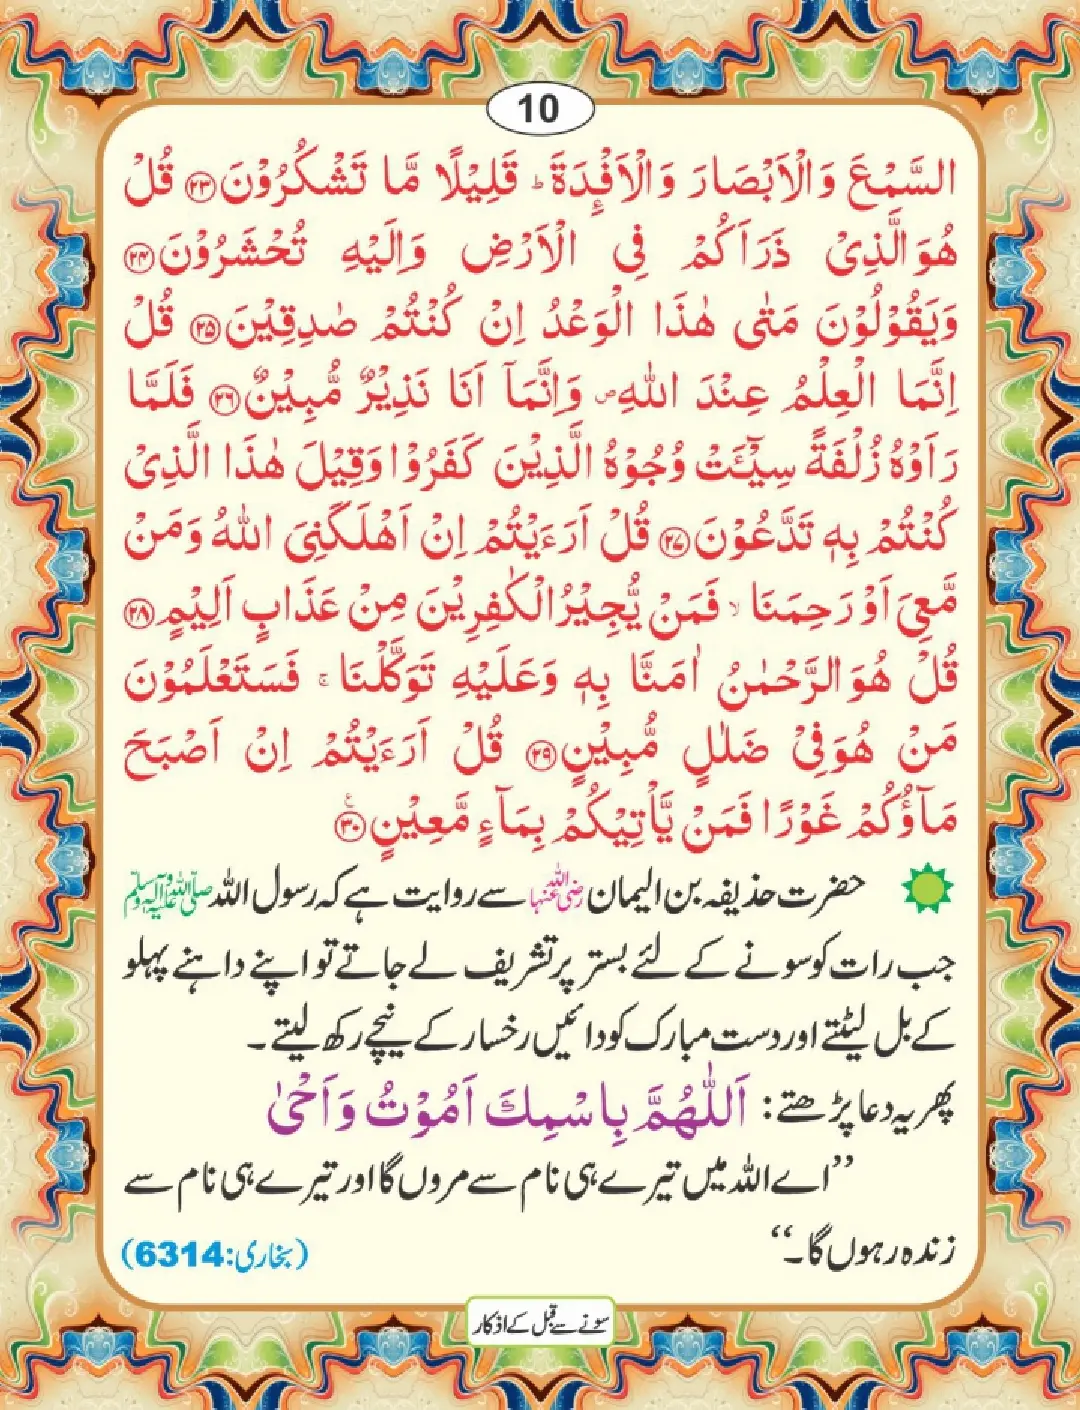 10
السَّمْعَ وَالْاَبْصَارَ وَالْاَفْـِٕدَةَ ؕ قَلِيْلًا مَّا تَشْكُرُوْنَ ﴿۲۳﴾ قُلْ
هُوَ الَّذِىْ ذَرَاَكُمْ فِى الْاَرْضِ وَاِلَيْهِ تُحْشَرُوْنَ ﴿۲۴﴾
وَيَقُوْلُوْنَ مَتٰى هٰذَا الْوَعْدُ اِنْ كُنْتُمْ صٰدِقِيْنَ ﴿۲۵﴾ قُلْ
اِنَّمَا الْعِلْمُ عِنْدَ اللّٰهِ ۖ وَاِنَّمَآ اَنَا نَذِيْرٌ مُّبِيْنٌ ﴿۲۶﴾ فَلَمَّا
رَاَوْهُ زُلْفَةً سِيْٓـَٔتْ وُجُوْهُ الَّذِيْنَ كَفَرُوْا وَقِيْلَ هٰذَا الَّذِىْ
كُنْتُمْ بِهٖ تَدَّعُوْنَ ﴿۲۷﴾ قُلْ اَرَءَيْتُمْ اِنْ اَهْلَكَنِىَ اللّٰهُ وَمَنْ
مَّعِىَ اَوْ رَحِمَنَا ۙ فَمَنْ يُّجِيْرُ الْكٰفِرِيْنَ مِنْ عَذَابٍ اَلِيْمٍ ﴿۲۸﴾
قُلْ هُوَ الرَّحْمٰنُ اٰمَنَّا بِهٖ وَعَلَيْهِ تَوَكَّلْنَا ۚ فَسَتَعْلَمُوْنَ
مَنْ هُوَ فِىْ ضَلٰلٍ مُّبِيْنٍ ﴿۲۹﴾ قُلْ اَرَءَيْتُمْ اِنْ اَصْبَحَ
مَآؤُكُمْ غَوْرًا فَمَنْ يَّاْتِيْكُمْ بِمَآءٍ مَّعِيْنٍ ﴿۳۰﴾ ع
حضرت حذیفہ بن الیمان رضی اللہ عنہما سے روایت ہے کہ رسول اللہ صلی اللہ علیہ وآلہ وسلم
جب رات کو سونے کے لئے بستر پر تشریف لے جاتے تو اپنے داہنے پہلو
کے بل لیٹتے اور دست مبارک کو دائیں رخسار کے نیچے رکھ لیتے۔
پھر یہ دعا پڑھتے: اَللّٰهُمَّ بِاسْمِكَ اَمُوْتُ وَاَحْىٰ
”اے اللہ میں تیرے ہی نام سے مروں گا اور تیرے ہی نام سے
زندہ رہوں گا۔“ (بخاری: 6314)
سونے سے قبل کے اذکار